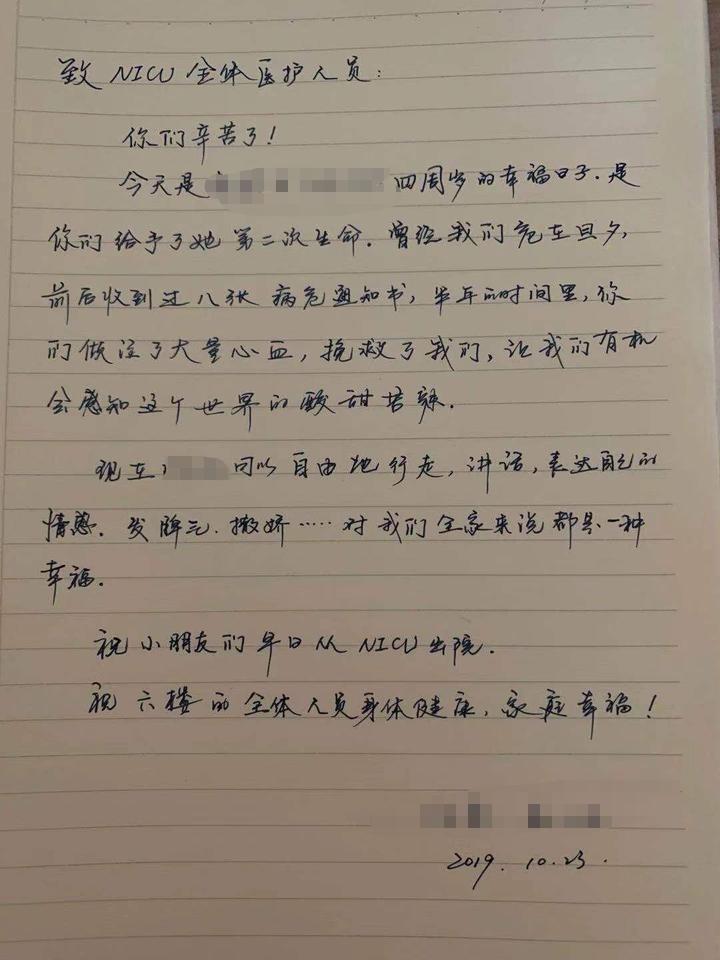 致 NICU 全体医护人员:
你们辛苦了!
今天是 四周岁的幸福日子.是
你们给予了她第二次生命.曾经我们危在旦夕,
前后收到过八张病危通知书,半年的时间里,你
们倾注了大量心血,挽救了我们,让我们有机
会感知这个世界的酸甜苦辣.
现在 可以自由地行走,讲话,表达自己的
情感.发脾气.撒娇……对我们全家来说都是一种
幸福.
祝小朋友们早日从NICU出院.
祝六楼的全体人员身体健康,家庭幸福!
2019.10.23.